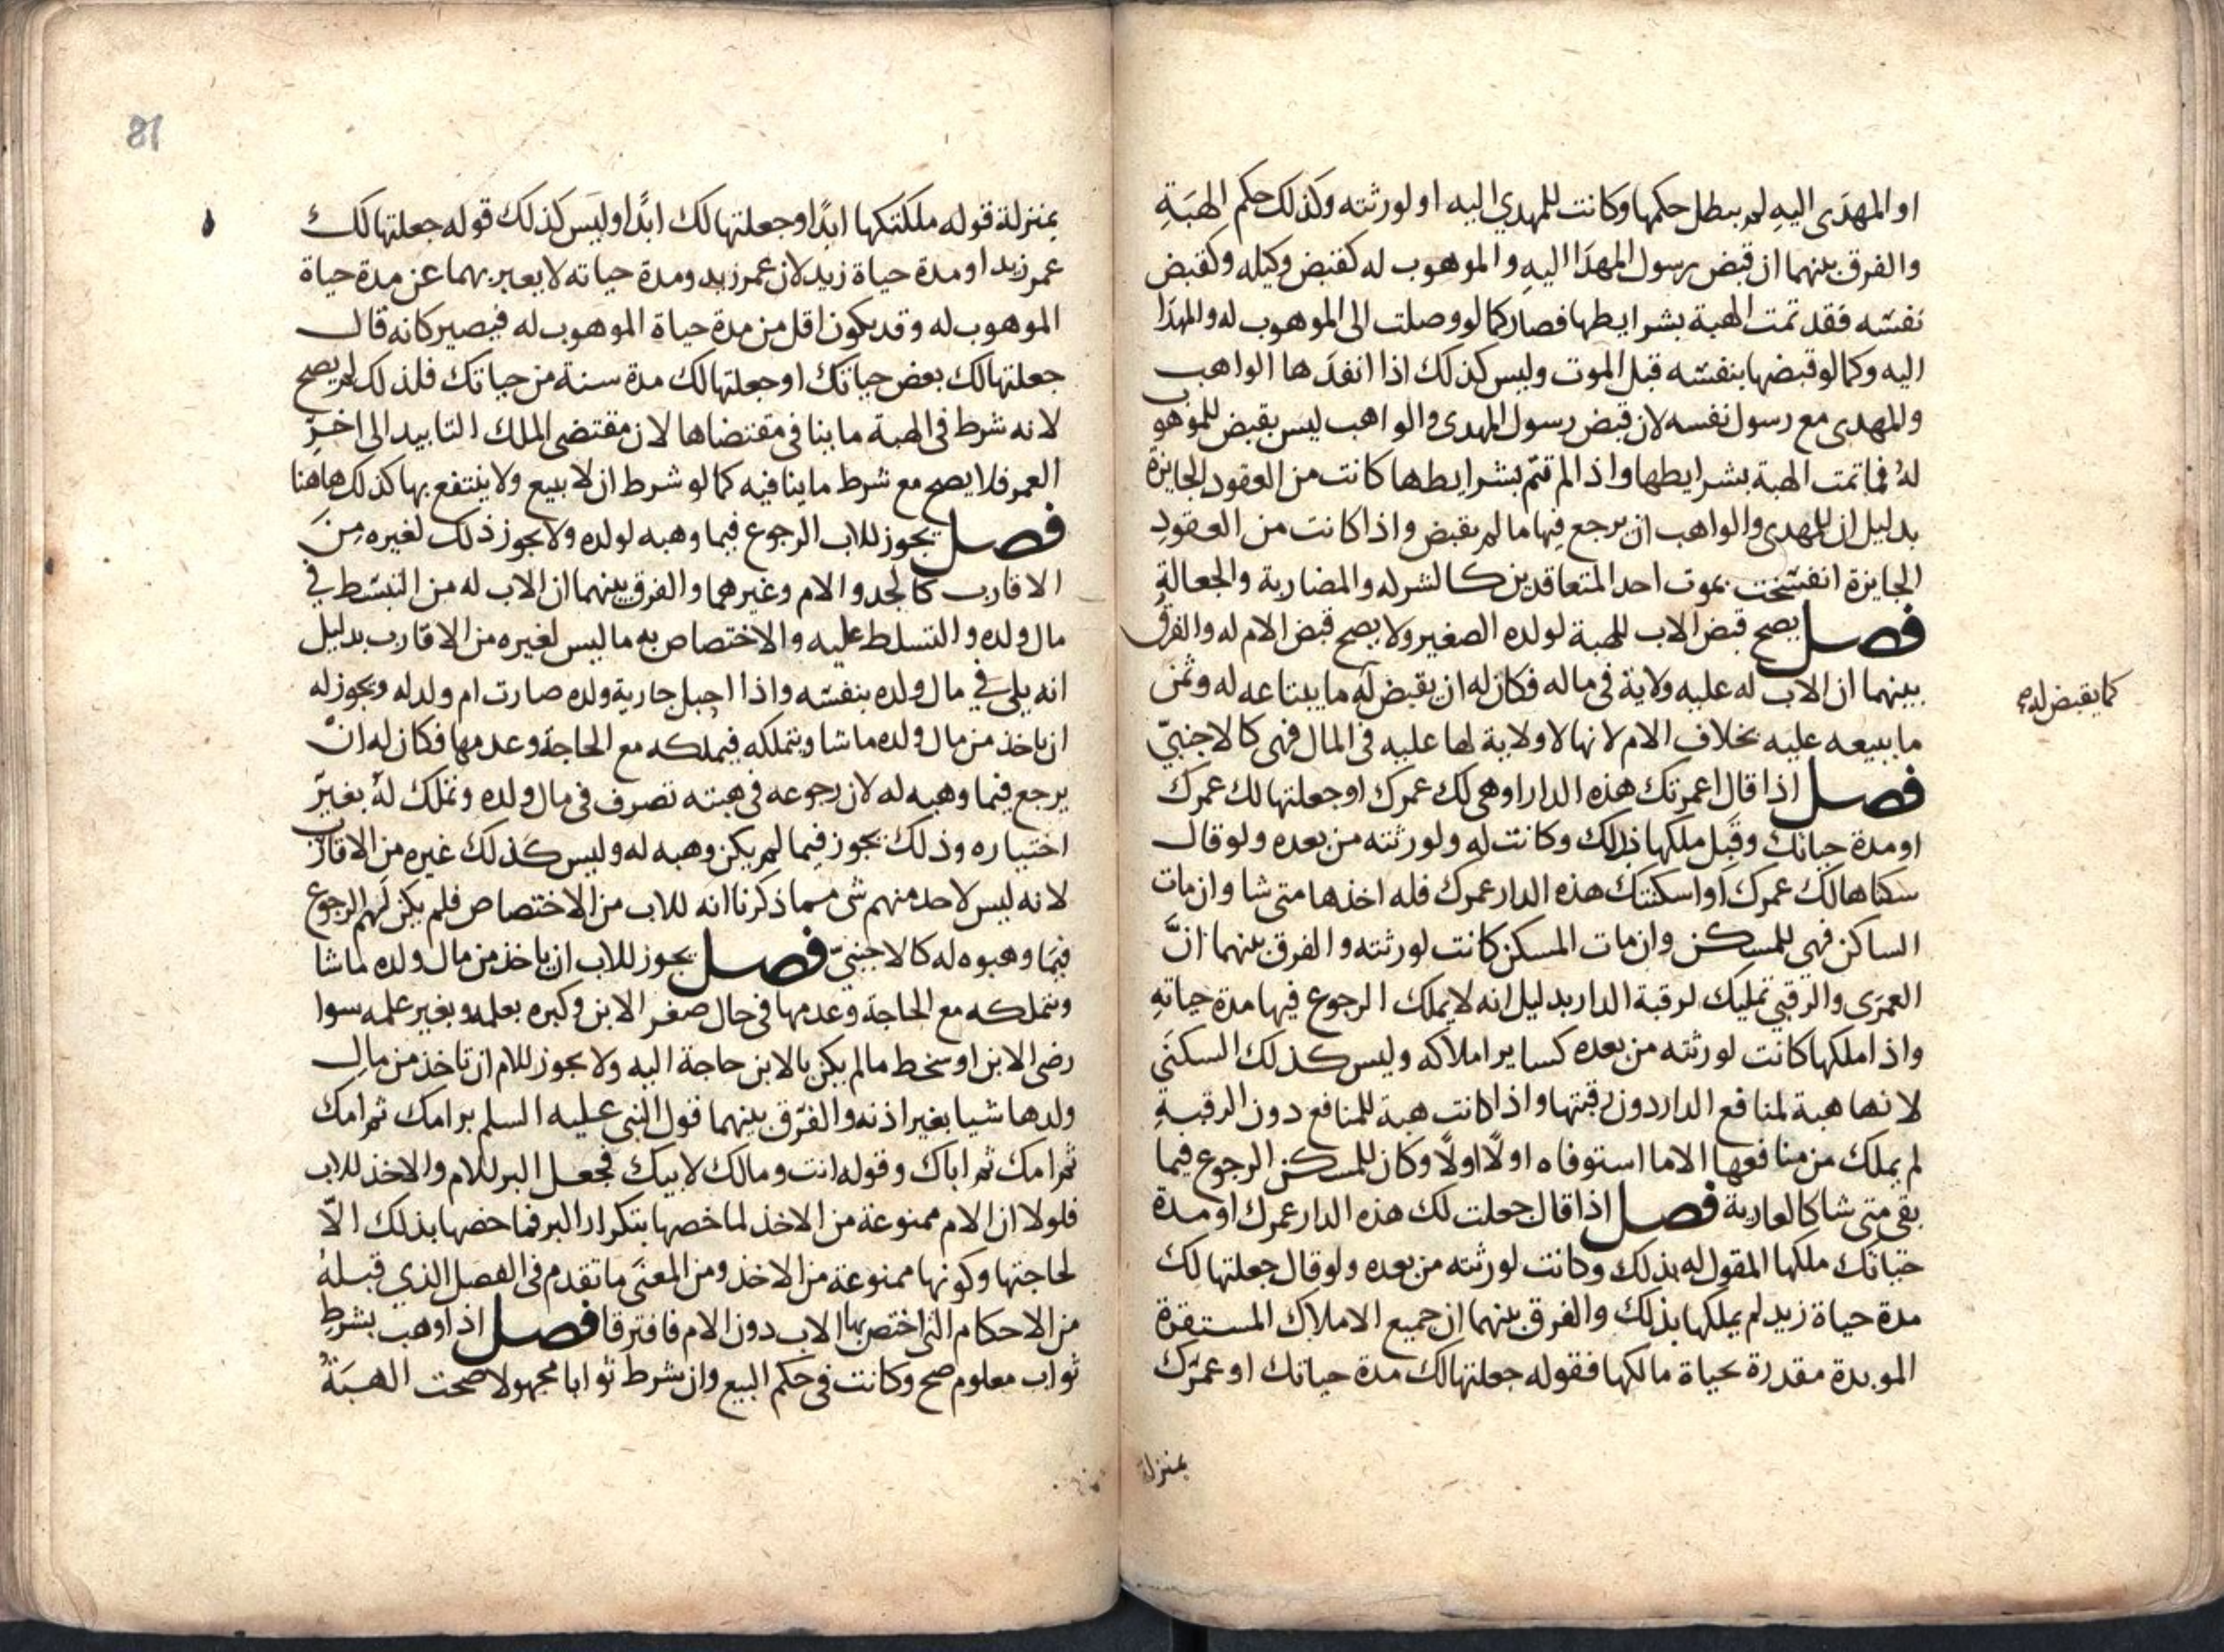 او المهدَى اليهِ لم يبطل حكمها وكانت للمهدي اليه او لورثته وكذلك حكم الهبَةِ
والفرق بينهما ان قبض رسول المهدَا اليهِ والموهوب له كقبض وكيله وكقبض
نفسه فقد تمت الهبة بشرايطها فصار كما لو وصلت الى الموهوب له والمهدَا
اليه وكما لو قبضها بنفسه قبل الموت وليس كذلك اذا انفدَها الواهب
والمهدى مع رسول نفسه لان قبض رسول المهدى والواهب ليس بقبض للموهوب
لهُ فما تمت الهبة بشرايطها واذا لم تتم بشرايطها كانت من العقود الجايزة
بدليل ان للمهدى والواهب ان يرجع فيها ما لم يقبض واذا كانت من العقودِ
الجايزة انفسخت بموت احد المتعاقدين كالشركه والمضاربة والجعالةِ
فصل يصح قبض الاب للهبة لولده الصغير ولا يصح قبض الام له والفرق
بينهما ان الاب له عليه ولاية فى ماله فكان له ان يقبض له ما يبتاعه له وثمن
كما يقبض له
ما يبيعه عليه بخلاف الام لانها لا ولاية لها عليه فى المال فهى كالاجنبيّ
فصل اذا قال اعمرتك هذه الدار او هى لك عمرك او جعلتها لك عمرك
او مدة حياتك وقَبِل ملكها بذلك وكانت له ولورثته من بعده ولو قال
سكناها لك عمرك او اسكنتك هذه الدار عمرك فله اخذها متى شا وان مات
الساكن فهى للمسكن وان مات المسكن كانت لورثته والفرق بينهما انَّ
العمرَى والرقبى تمليك لرقبة الدار بدليل انه لا يملك الرجوع فيها مدة حياتهِ
واذا ملكها كانت لورثته من بعده كساير املاكه وليس كذلك السكنَى
لانها هبة لمنافع الدار دون رقبتها واذا كانت هبة للمنافع دون الرقبةِ
لم يملك من منافعها الا ما استوفاه اولًا اولًا وكان للمسكن الرجوع فيما
بقى متى شا كالعارية فصل اذا قال جعلت لك هذه الدار عمرك او مدة
حياتك ملكها المقول له بذلك وكانت لورثته من بعده ولو قال جعلتها لك
مدة حياة زيد لم يملكها بذلك والفرق بينهما ان جميع الاملاك المستقرة
الموبدة مقدرة بحياة مالكها فقوله جعلتها لك مدة حياتك او عمرك
بمنزلة
81
بمنزلة قوله ملكتكها ابدًا او جعلتها لك ابدًا وليس كذلك قوله جعلتها لك
عمر زيد او مدة حياة زيد لان عمر زيد ومدة حياته لا يعبر بهما عن مدة حياة
الموهوب له وقد يكون اقل من مدة حياة الموهوب له فيصير كانه قال
جعلتها لك بعض حياتك او جعلتها لك مدة سنة من حياتك فلذلك لم يصح
لانه شرط فى الهبة ما ينافى مقتضاها لان مقتضى الملك التابيد الى اخر
العمر فلا يصح مع شرط ما ينافيه كما لو شرط ان لا يبيع ولا ينتفع بها كذلك هاهنا
فصل يجوز للاب الرجوع فيما وهبه لولده ولا يجوز ذلك لغيره مِنَ
الاقارب كالجد والام وغيرهما والفرق بينهما ان الاب له من التبسّط في
مال ولده والتسلط عليه والاختصاص به ما ليس لغيره من الاقارب بدليل
انه يلى في مال ولده بنفسه واذا احبل جارية ولده صارت ام ولد له ويجوز له
ان ياخذ من مال ولده ما شا ويتملكه فيملكه مع الحاجة وعدمها فكان له انْ
يرجع فيما وهبه له لان رجوعه فى هبته تصرف فى مال ولده وتملك لهُ بغير
اختياره وذلك يجوز فيما لم يكن وهبه له وليس كذلك غيره من الاقارب
لانه ليس لاحد منهم شى مما ذكرنا انه للاب من الاختصاص فلم يكن لهم الرجوع
فيما وهبوه له كالاجنبيّ فصل يجوز للاب ان ياخذ من مال ولده ما شا
ويتملكه مع الحاجة وعدمها فى حال صغر الابن وكبره بعلمه وبغير علمه سوا
رضى الابن او سخط ما لم يكن بالابن حاجة اليه ولا يجوز للام ان تاخذ من مال
ولدها شيا بغير اذنه والفرق بينهما قول النبى عليه السلم بر امك ثم امك
ثم امك ثم اباك وقوله انت ومالك لابيك فجعل البر للام والاخذ للاب
فلولا ان الام ممنوعة من الاخذ لما خصها بتكرار البر فما خصها بذلك الّا
لحاجتها وكونها ممنوعة من الاخذ ومن المعنَى ما تقدم فى الفصل الذي قبلهُ
من الاحكام التى اختص بها الاب دون الام فافترقا فصل اذا وهب بشرط
ثواب معلوم صح وكانت فى حكم البيع وان شرط ثوابا مجهولا صحت الهبَةُ